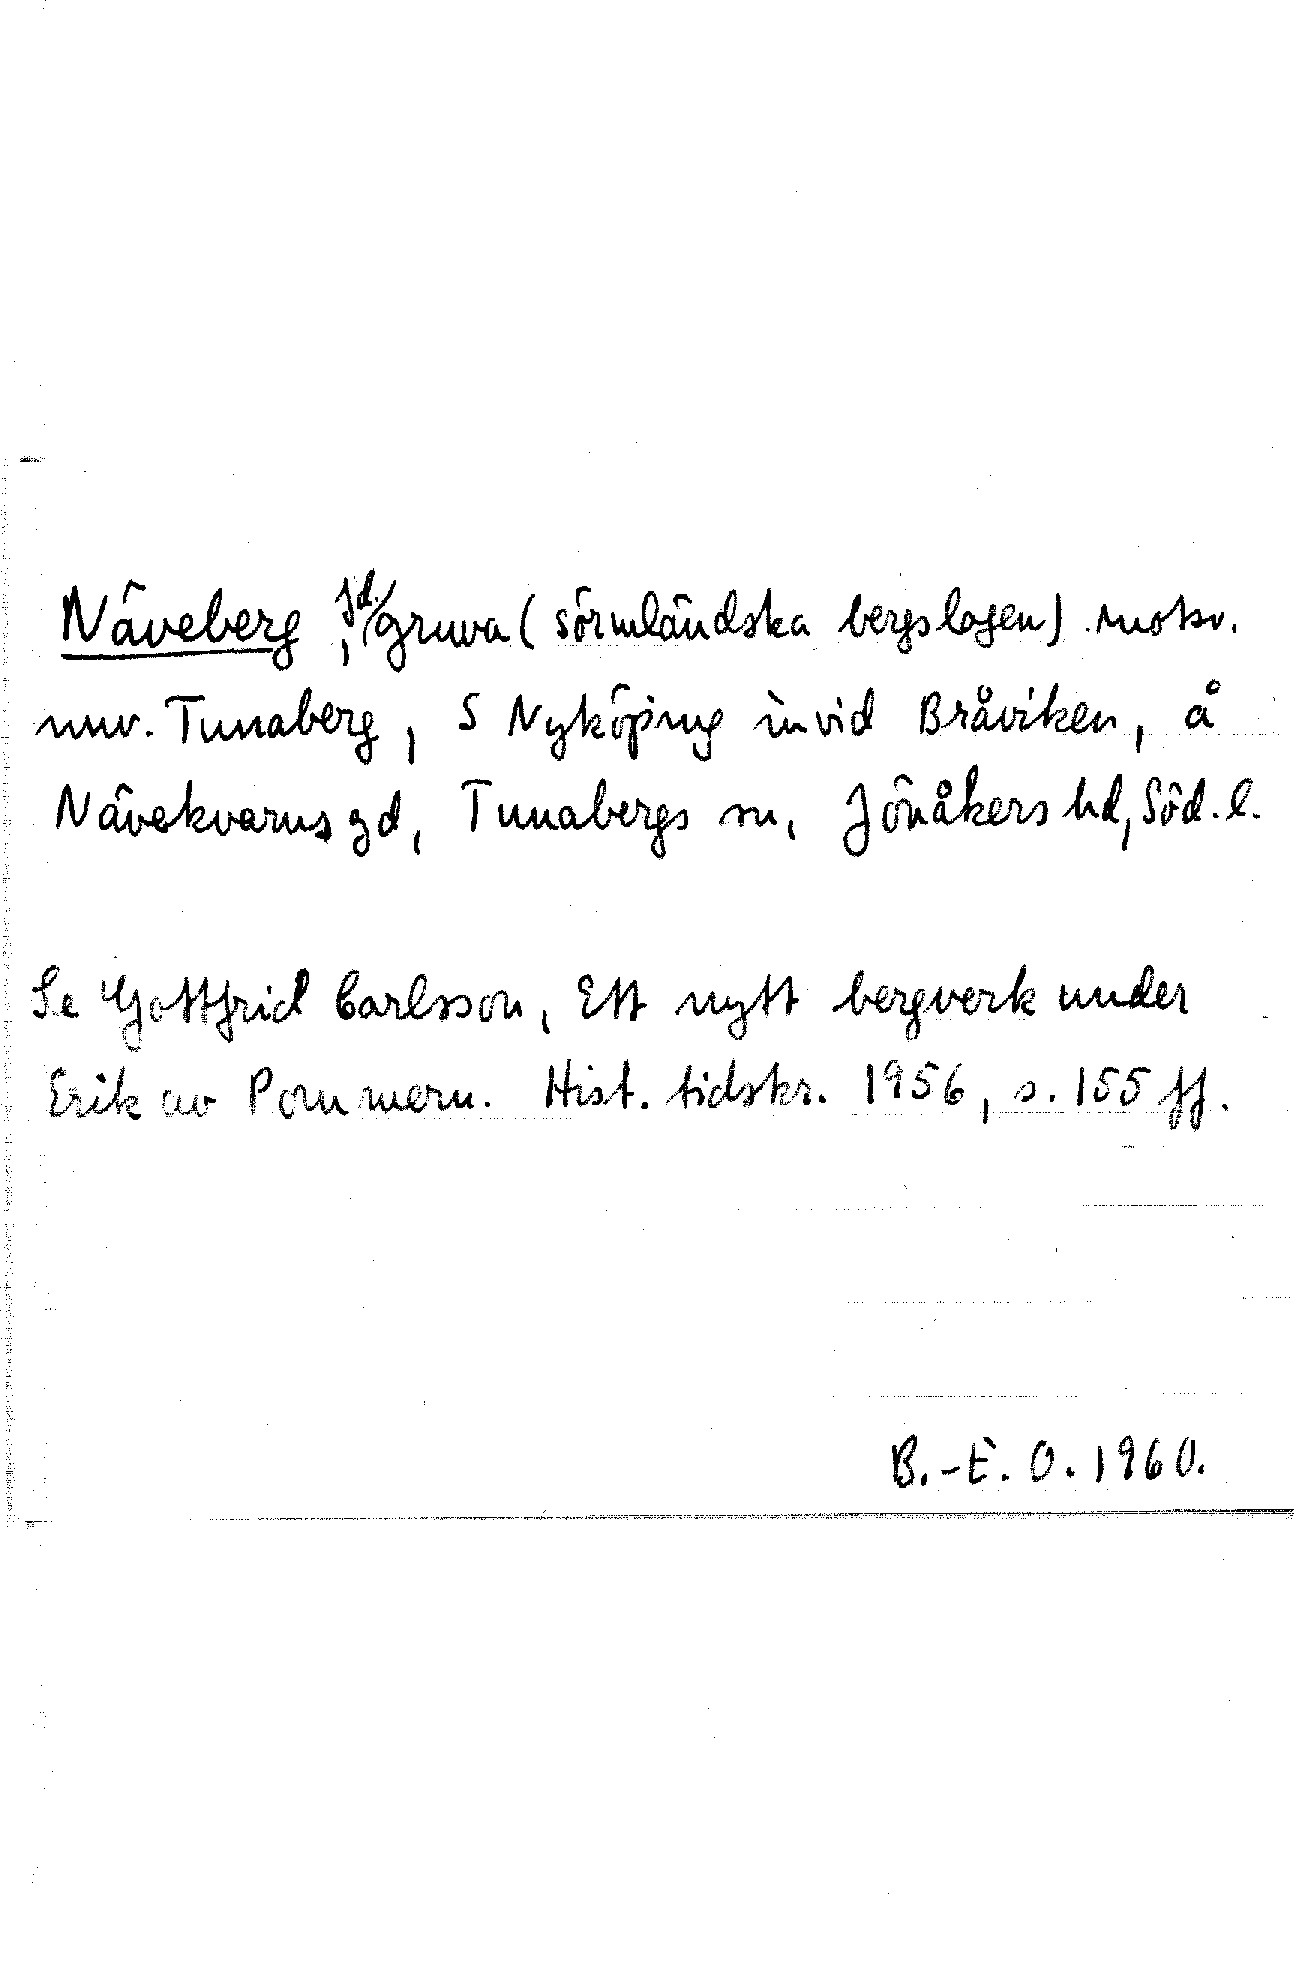 Näveberg, fd. gruva (sörmländska bergslagen) motsv.
nuv. Tunaberg, S Nyköping invid Bråviken, å
Nävekvarns gd, Tunabergs sn, Jönåkers hd, Söd. l.
Se Gottfrid Carlsson, Ett nytt bergverk under
Erik av Pommern. Hist. tidskr. 1956, s. 155 ff.
B.-E. O. 1960.